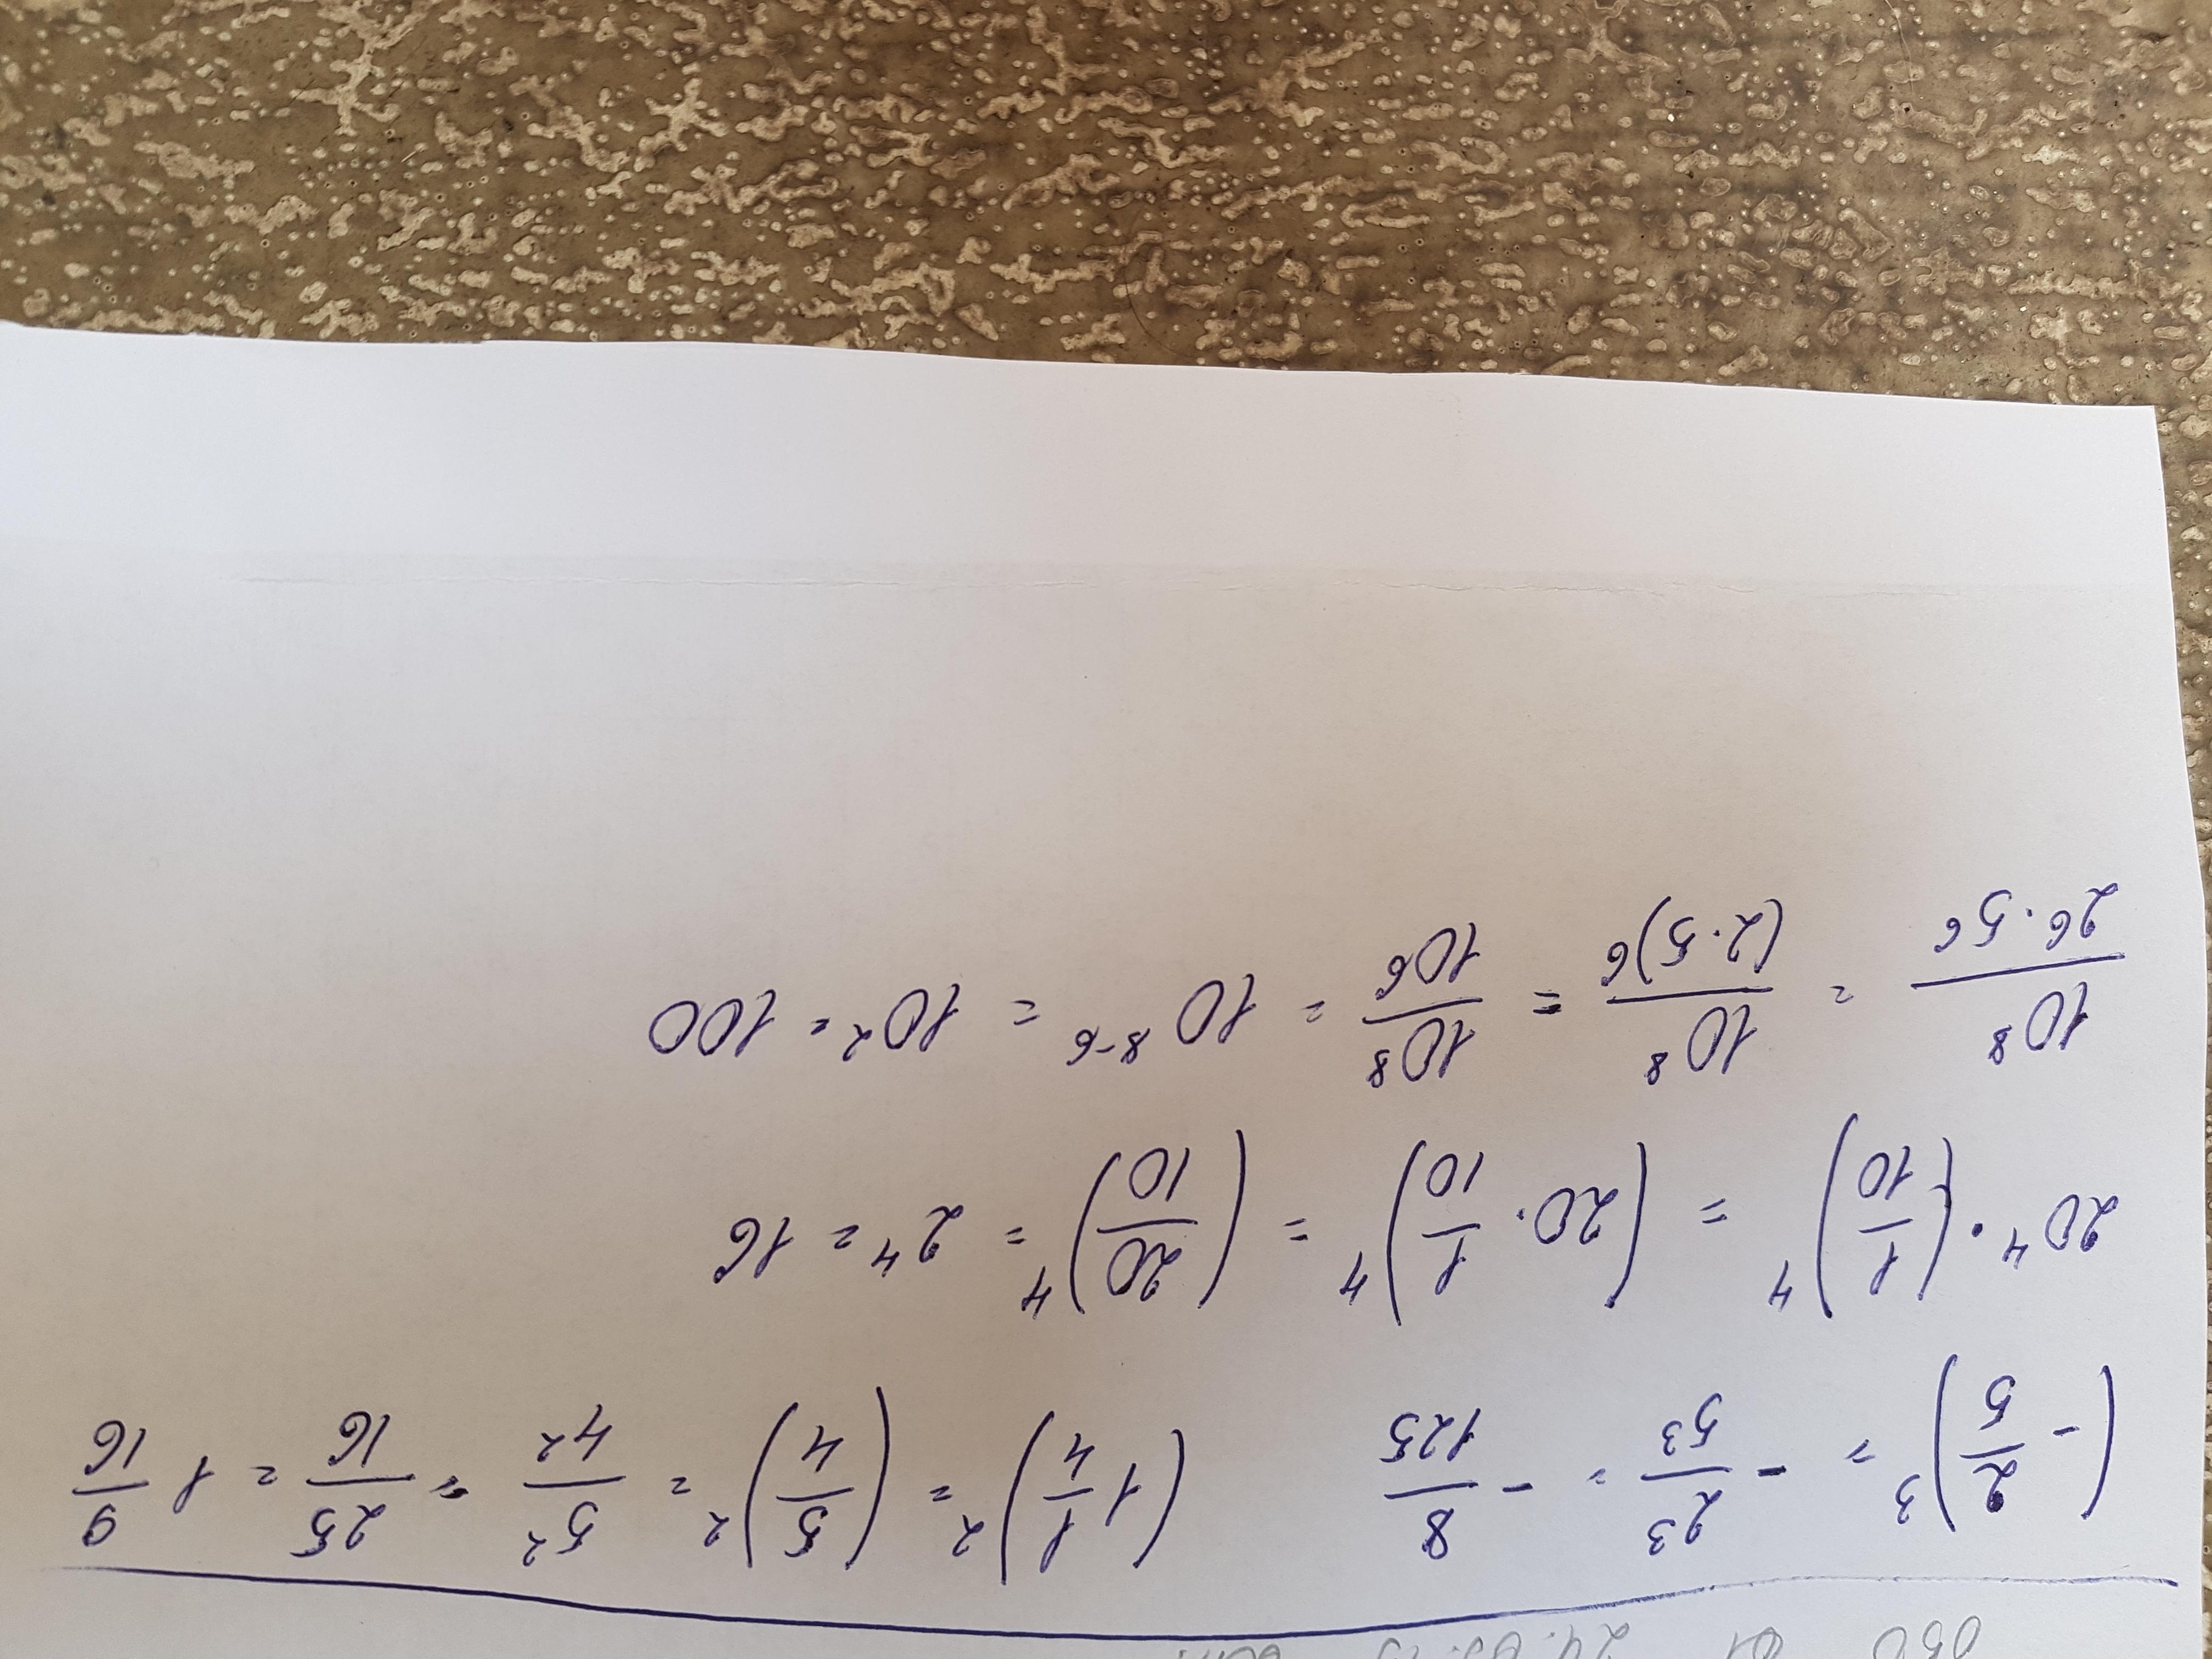 (-2/5)³ = -2³/5³ = -8/125 (1 1/4)² = (5/4)² = 5²/4² = 25/16 = 1 9/16
20⁴ · (1/10)⁴ = (20 · 1/10)⁴ = (20/10)⁴ = 2⁴ = 16
10⁸/2⁶·5⁶ = 10⁸/(2·5)⁶ = 10⁸/10⁶ = 10⁸⁻⁶ = 10² = 100